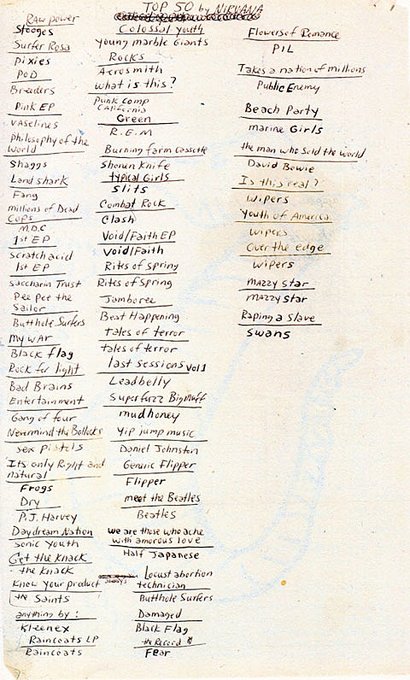 TOP 50 by NIRVANA
Raw power
Stooges
Surfer Rosa
Pixies
POD
Breeders
Pink EP
Vaselines
Philosophy of the
World
Shaggs
Land shark
Fang
millions of Dead
Cops
M.D.C
1st EP
Scratch acid
1st EP
Saccharin Trust
Pee pee the
Sailor
Butthole Surfers
My WAr
Black flag
Rock for light
Bad Brains
Entertainment
Gang of four
Nevermind the Bollocks
Sex Pistols
Its only Right and
natural
Frogs
Dry
P.J. Harvey
Daydream Nation
Sonic Youth
Get the Knack
the Knack
Know your product
the Saints
anything by:
Kleenex
Raincoats LP
Raincoats
Colossal youth
young marble Giants
Rocks
Aerosmith
what is this?
Punk Comp
California
Green
R.E.M
Burning farm Cassette
Shonen Knife
typical Girls
Slits
Combat Rock
Clash
Void/Faith EP
Void/Faith
Rites of Spring
Rites of Spring
Jamboree
Beat Happening
tales of terror
tales of terror
last sessions vol 1
Leadbelly
Superfuzz Bigmuff
mudhoney
Yip jump music
Daniel Johnston
Generic Flipper
Flipper
meet the Beatles
Beatles
we are those who ache
with amorous love
Half Japanese
Locust abortion
technician
Butthole Surfers
Damaged
Black Flag
the Record
Fear
Flowers of Romance
PIL
Takes a nation of millions
Public Enemy
Beach Party
marine Girls
the man who Sold the world
David Bowie
Is this real?
Wipers
Youth of America
wipers
Over the edge
wipers
mazzy star
mazzy star
Raping a Slave
Swans